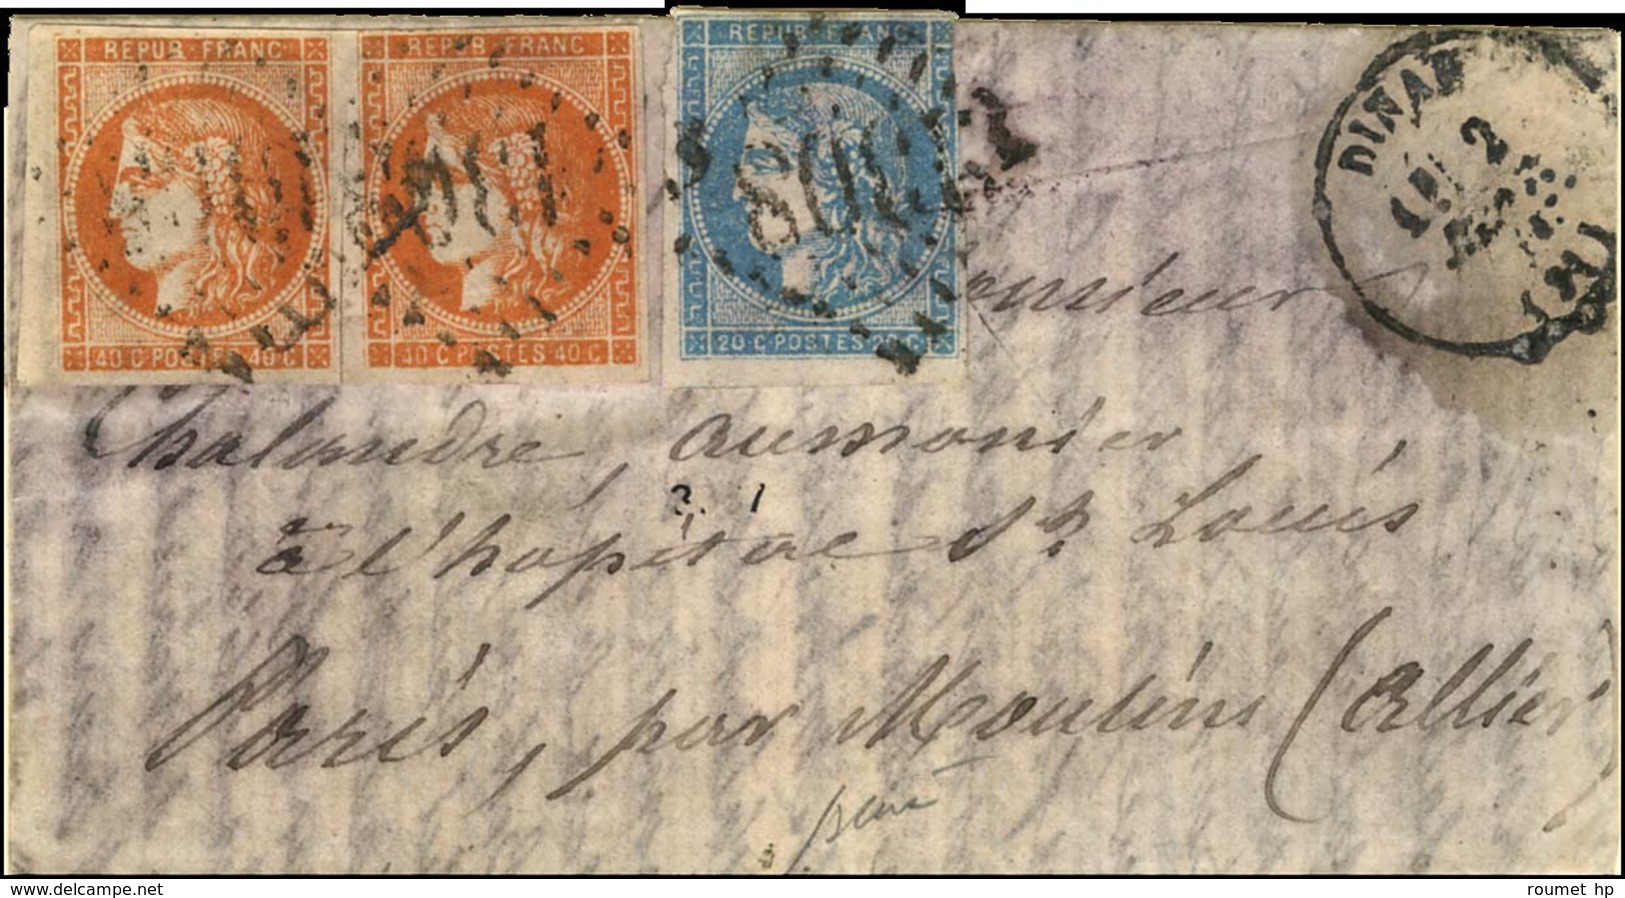 REPUB·FRANC
REPUB·FRANC
REPUB·FRANC
40 C POSTES 40 C
40 C POSTES 40 C
20 C POSTES 20 C
DINAN
2
Monsieur
Chalandre, aumonier
à l'hopital St Louis
Paris, par Moulins (Allier)
www.delcampe.net
roumet hp